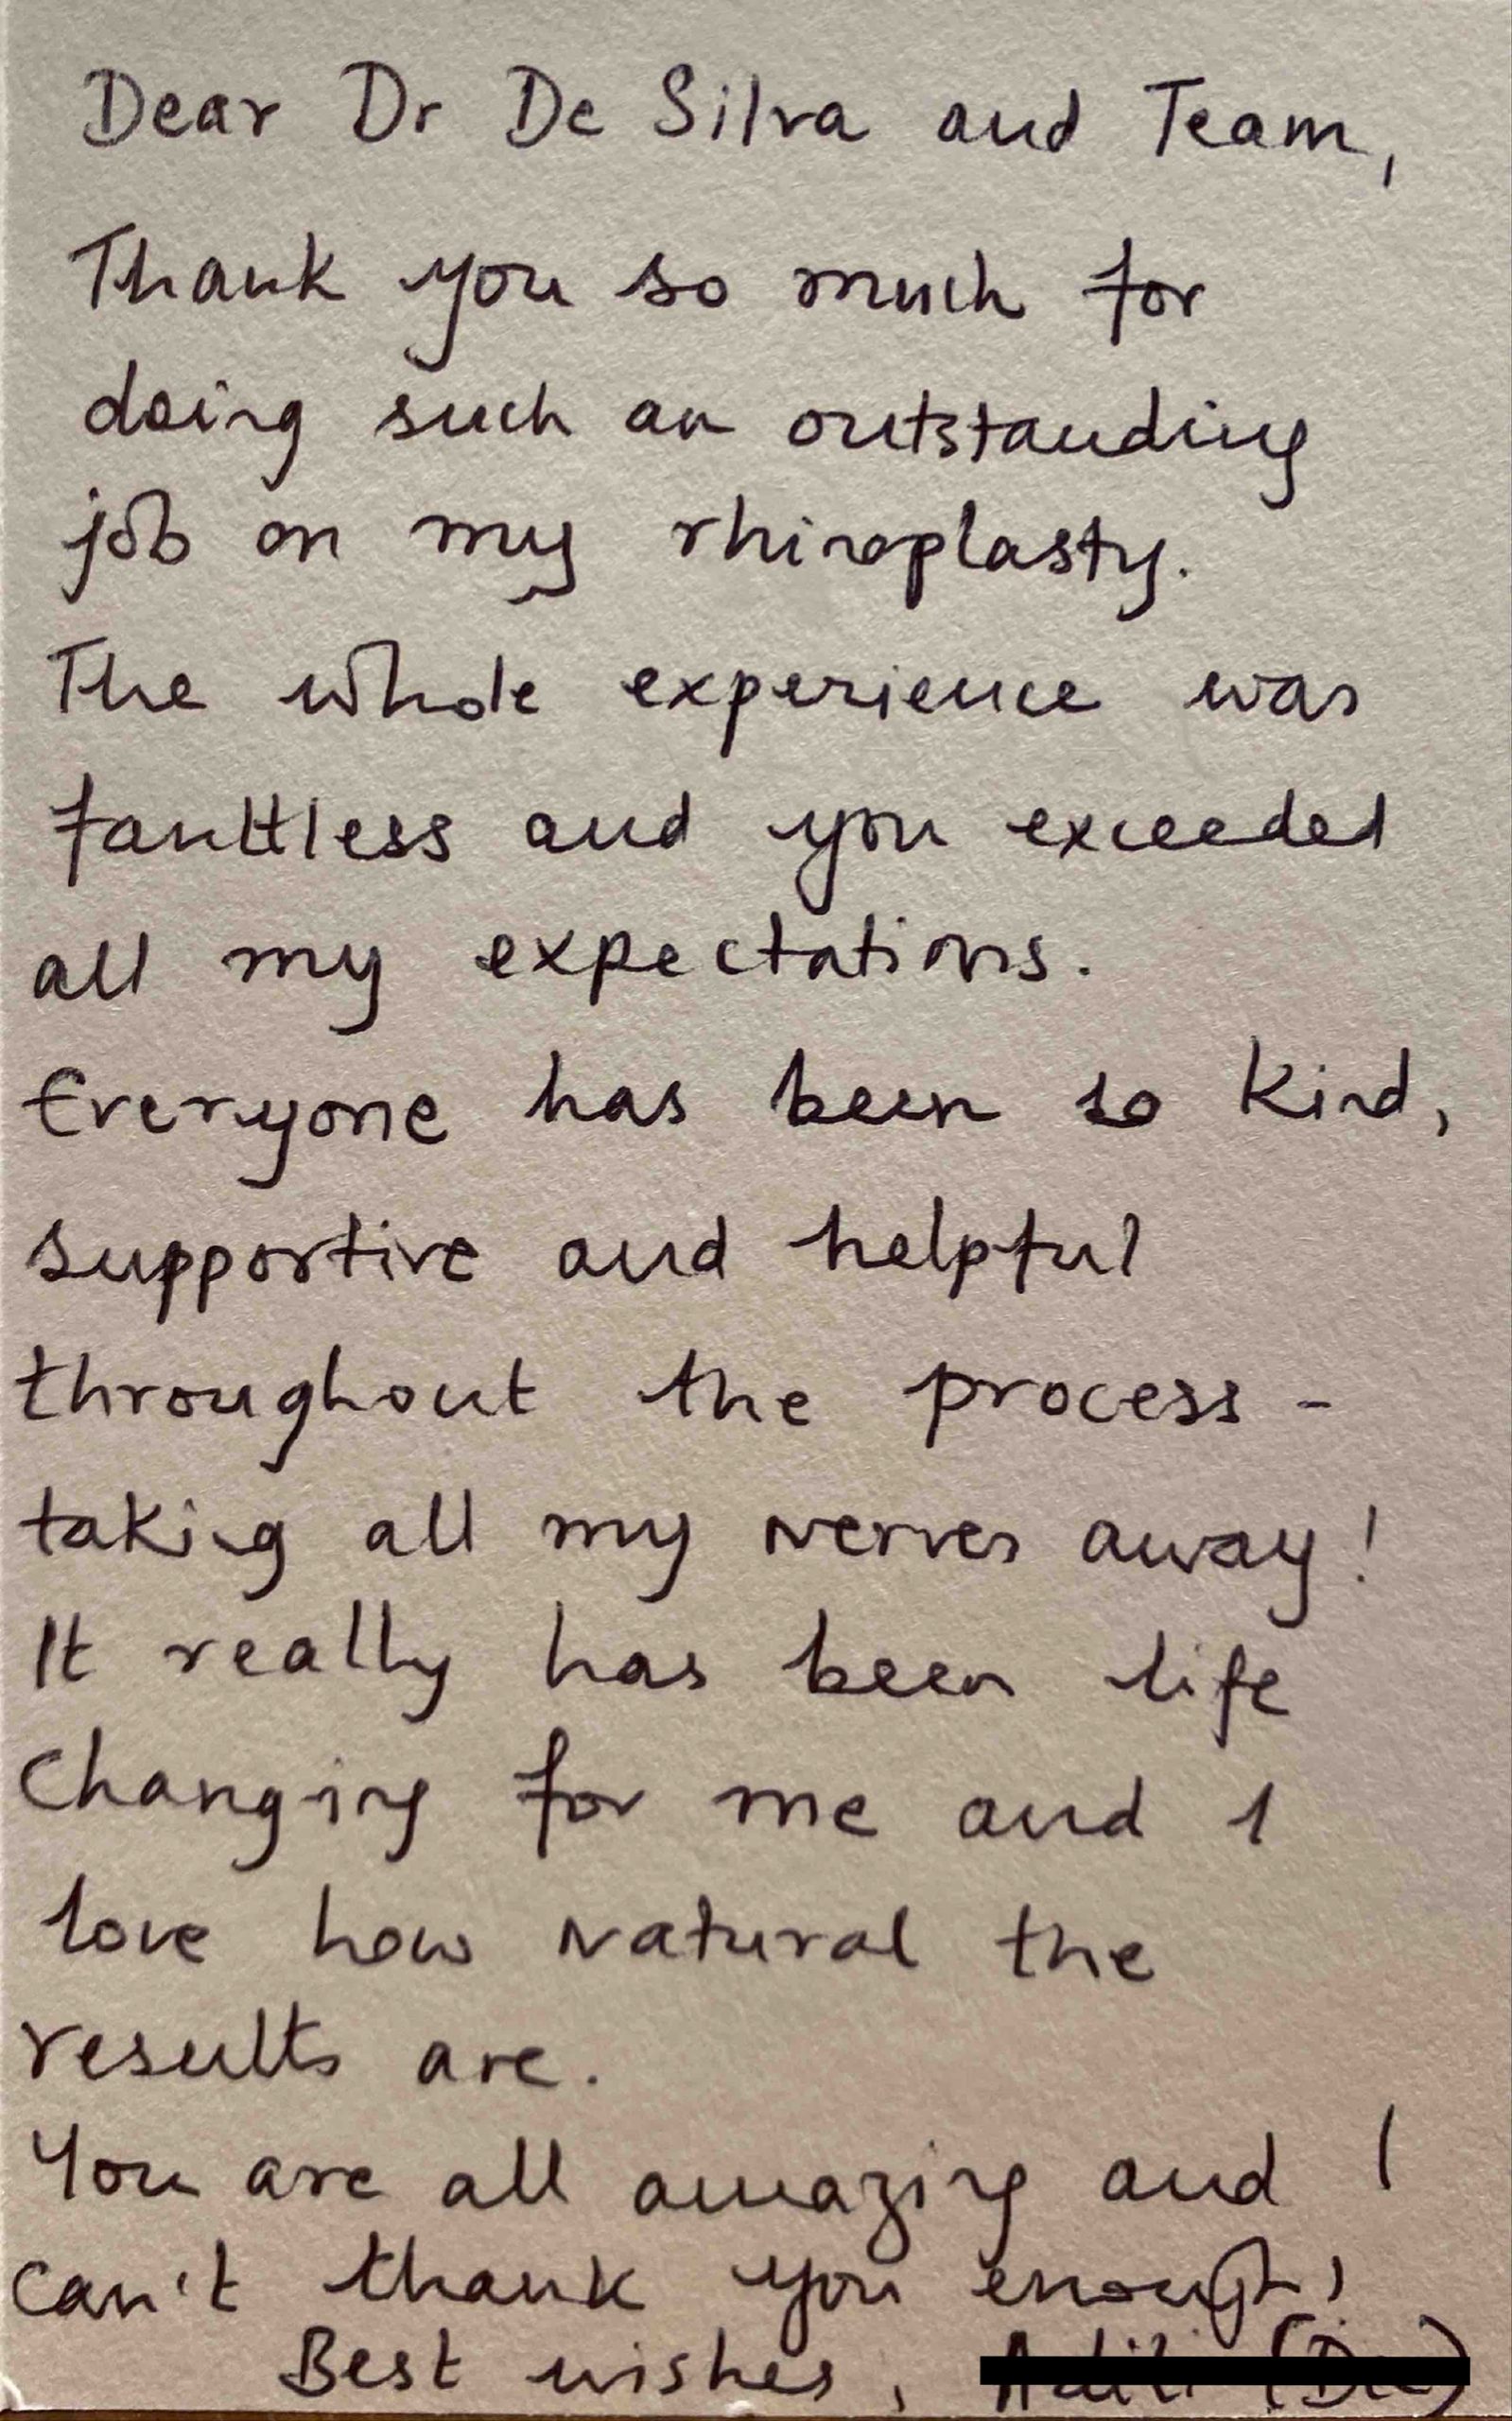 Dear Dr De Silva and Team,
Thank you so much for
doing such an outstanding
job on my rhinoplasty.
The whole experience was
faultless and you exceeded
all my expectations.
Everyone has been so kind,
supportive and helpful
throughout the process -
taking all my nerves away!
It really has been life
changing for me and I
love how natural the
results are.
You are all amazing and I
can't thank you enough!
Best wishes,